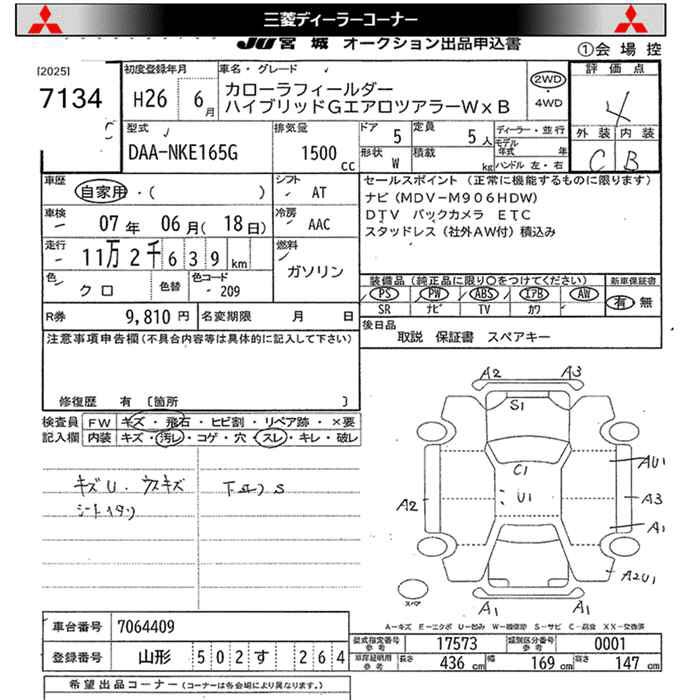 三菱ディーラーコーナー
JU宮城 オークション出品申込書
①会場控
[2025]
7134
初度登録年月
H26 6月
車名・グレード
カローラフィールダー
ハイブリッドGエアロツアラーW×B
2WD
・4WD
評価点
4
外装 内装
C B
型式
DAA-NKE165G
排気量
1500 cc
ドア 5
定員 5人
形状 W
積載 kg
ディーラー・並行
モデル年式 年
ハンドル 左・右
車歴
自家用・( )
シフト
AT
車検
07年 06月(18日)
冷房
AAC
走行
11万2千639km
燃料
ガソリン
色
クロ
色替
色コード
209
R券 9,810円
名変期限 月 日
セールスポイント (正常に機能するものに限ります)
ナビ(MDV-M906HDW)
DTV バックカメラ ETC
スタッドレス(社外AW付)積込み
装備品(純正品に限り○をつけてください)
PS PW ABS エアB AW
SR ナビ TV カワ
新車保証書
有 無
後日品
取説 保証書 スペアキー
注意事項申告欄(不具合内容等は具体的に記入して下さい)
修復歴 有 〔箇所 〕
検査員記入欄
FW キズ・飛石・ヒビ割・リペア跡・×要
内装 キズ・汚レ・コゲ・穴・スレ・キレ・破レ
キズU・ウスキズ
下回りS
シートイタン
A2 A3
S1
C1
U1
A2
AU1
A3
A1
A2U1
スペア
A1 A1
A-キズ E-エクボ U-凹み W-補修跡 S-サビ C-腐食 XX-交換済
車台番号 7064409
登録番号 山形 502 す 264
型式指定番号参考 17573
類別区分番号参考 0001
車庫証明用参考 長さ 436cm 幅 169cm 高さ 147cm
希望出品コーナー(コーナーは各会場により異なります。)